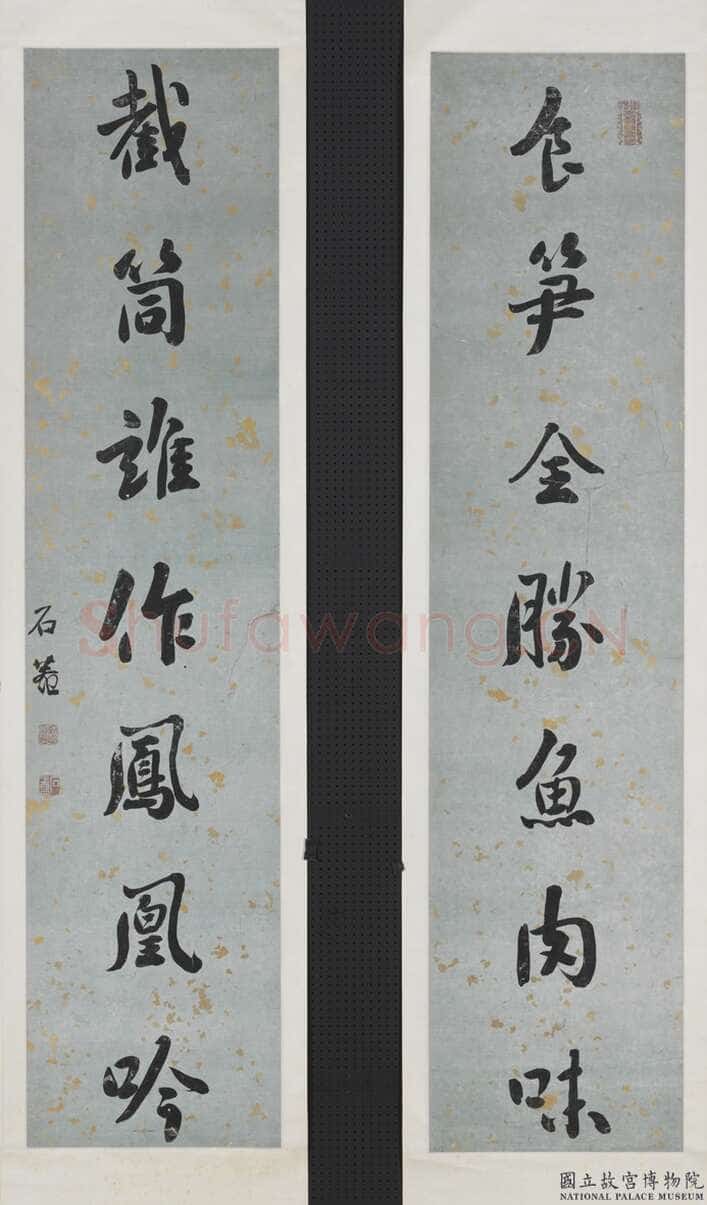 食笋全勝魚肉味
截筒誰作鳳凰吟
石菴
Shufawang.CN
國立故宮博物院
NATIONAL PALACE MUSEUM